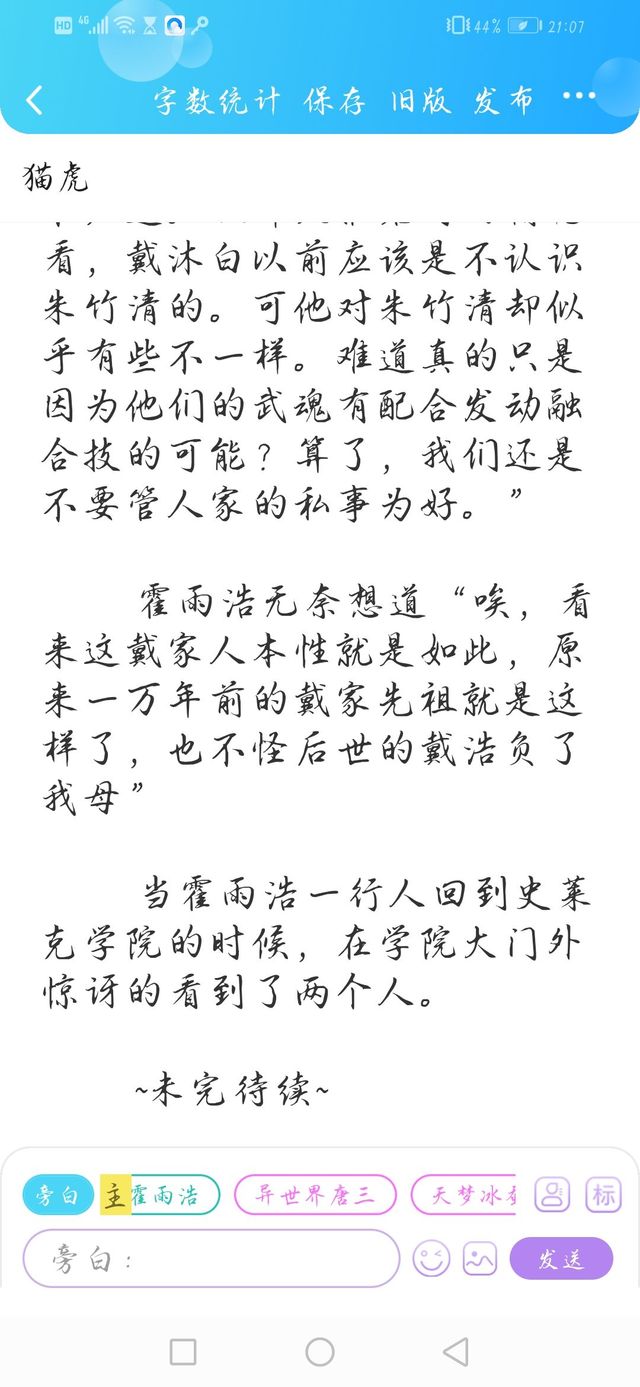 HD 4G 44% 21:07
字数统计 保存 旧版 发布 •••
猫虎
看，戴沐白以前应该是不认识
朱竹清的。可他对朱竹清却似
乎有些不一样。难道真的只是
因为他们的武魂有配合发动融
合技的可能？算了，我们还是
不要管人家的私事为好。”
霍雨浩无奈想道“唉，看
来这戴家人本性就是如此，原
来一万年前的戴家先祖就是这
样了，也不怪后世的戴浩负了
我母”
当霍雨浩一行人回到史莱
克学院的时候，在学院大门外
惊讶的看到了两个人。
~未完待续~
旁白 主 霍雨浩 异世界唐三 天梦冰 标
旁白： 发送